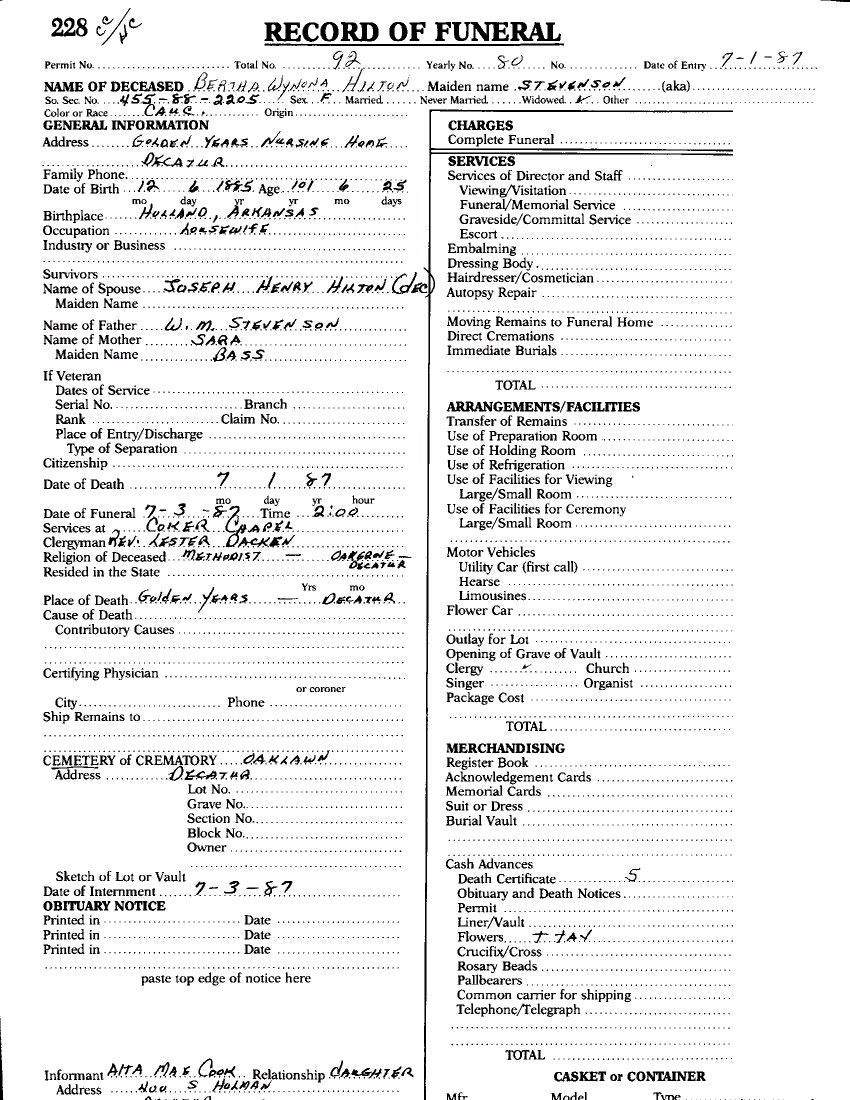 228 RECORD OF FUNERAL
Permit No. Total No. 92 Yearly No. 80 No. Date of Entry 7-1-87
NAME OF DECEASED BERTHA WYNONA HILTON Maiden name STEVENSON (aka)
So. Sec. No. 455-88-2205 Sex F Married Never Married Widowed ✓ Other
Color or Race CAUC. Origin
GENERAL INFORMATION
Address GOLDEN YEARS NURSING HOME
DECATUR
Family Phone
Date of Birth 12 6 1885 Age 101 6 25
mo day yr yr mo days
Birthplace HOLLAND, ARKANSAS
Occupation HOUSEWIFE
Industry or Business
Survivors
Name of Spouse JOSEPH HENRY HILTON (dec)
Maiden Name
Name of Father W.M. STEVENSON
Name of Mother SARA
Maiden Name BASS
If Veteran
Dates of Service
Serial No. Branch
Rank Claim No.
Place of Entry/Discharge
Type of Separation
Citizenship
Date of Death 7 1 87
mo day yr hour
Date of Funeral 7-3-87 Time 2:00
Services at COKER CHAPEL
Clergyman REV. LESTER DACKEN
Religion of Deceased METHODIST — DECATUR
Resided in the State
Yrs mo
Place of Death GOLDEN YEARS — DECATUR
Cause of Death
Contributory Causes
Certifying Physician
or coroner
City Phone
Ship Remains to
CEMETERY of CREMATORY OAKLAWN
Address DECATUR
Lot No.
Grave No.
Section No.
Block No.
Owner
Sketch of Lot or Vault
Date of Internment 7-3-87
OBITUARY NOTICE
Printed in Date
Printed in Date
Printed in Date
paste top edge of notice here
Informant AITA MAE COOK Relationship DAUGHTER
Address S HOLMAN
CHARGES
Complete Funeral
SERVICES
Services of Director and Staff
Viewing/Visitation
Funeral/Memorial Service
Graveside/Committal Service
Escort
Embalming
Dressing Body
Hairdresser/Cosmetician
Autopsy Repair
Moving Remains to Funeral Home
Direct Cremations
Immediate Burials
TOTAL
ARRANGEMENTS/FACILITIES
Transfer of Remains
Use of Preparation Room
Use of Holding Room
Use of Refrigeration
Use of Facilities for Viewing
Large/Small Room
Use of Facilities for Ceremony
Large/Small Room
Motor Vehicles
Utility Car (first call)
Hearse
Limousines
Flower Car
Outlay for Lot
Opening of Grave of Vault
Clergy ✓ Church
Singer Organist
Package Cost
TOTAL
MERCHANDISING
Register Book
Acknowledgement Cards
Memorial Cards
Suit or Dress
Burial Vault
Cash Advances
Death Certificate 5
Obituary and Death Notices
Permit
Liner/Vault
Flowers + TAX
Crucifix/Cross
Rosary Beads
Pallbearers
Common carrier for shipping
Telephone/Telegraph
TOTAL
CASKET or CONTAINER
Mfr. Model Type